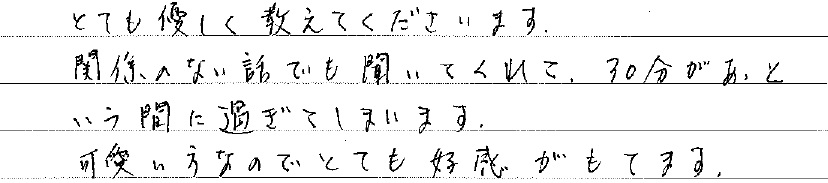 とても優しく教えてくださいます.
関係のない話でも聞いてくれて、30分があっと
いう間に過ぎてしまいます.
可愛い方なのでとても好感がもてます.